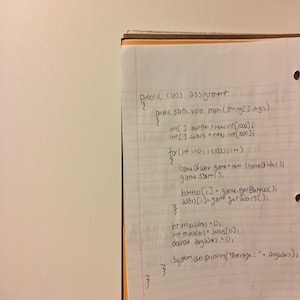 public class assignment
{
public static void main (String[] args)
{
int[] battles = new int[1000];
int[] wars = new int[1000];
for(int i=0; i<1000; i++)
{
GameOfWar game = new GameOfWar();
game.start();
battles[i] = game.getBattles();
wars[i] = game.getWars();
}
int maxWars = 0;
int minWars = wars[0];
double avgWars = 0;
System.out.println("Average: " + avgWars);
}
}